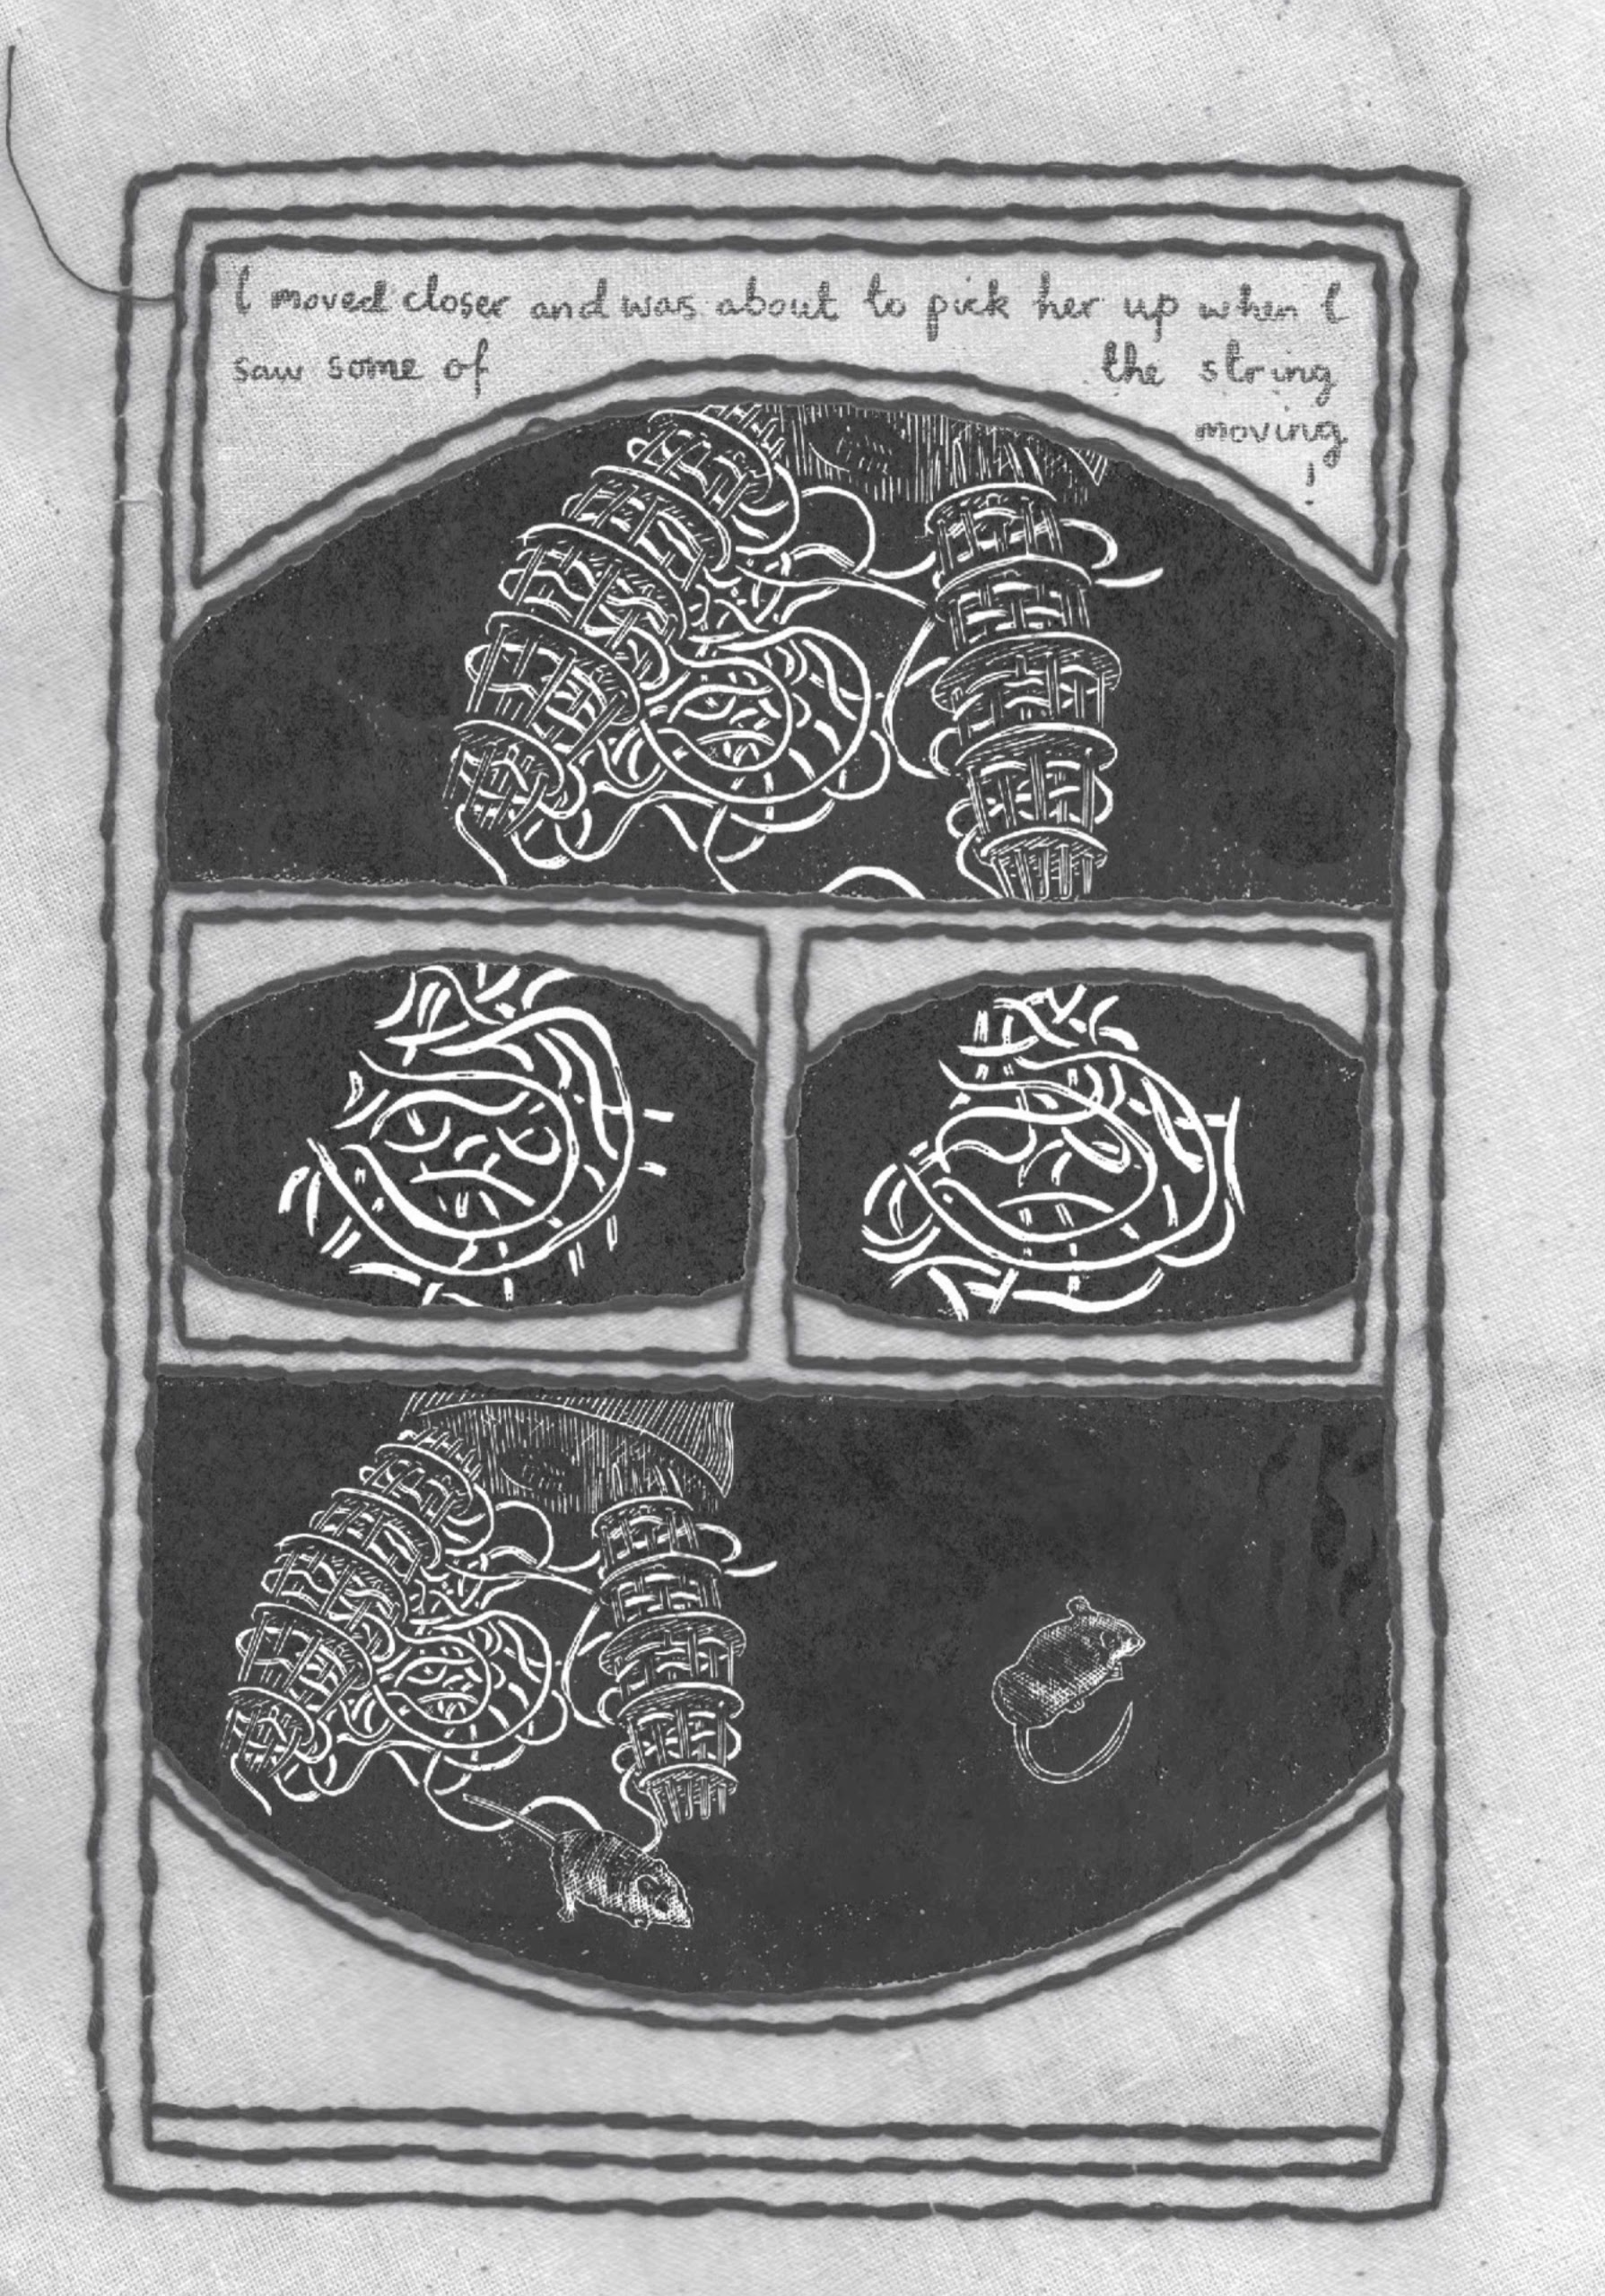 I moved closer and was about to pick her up when I
saw some of the string
moving
!